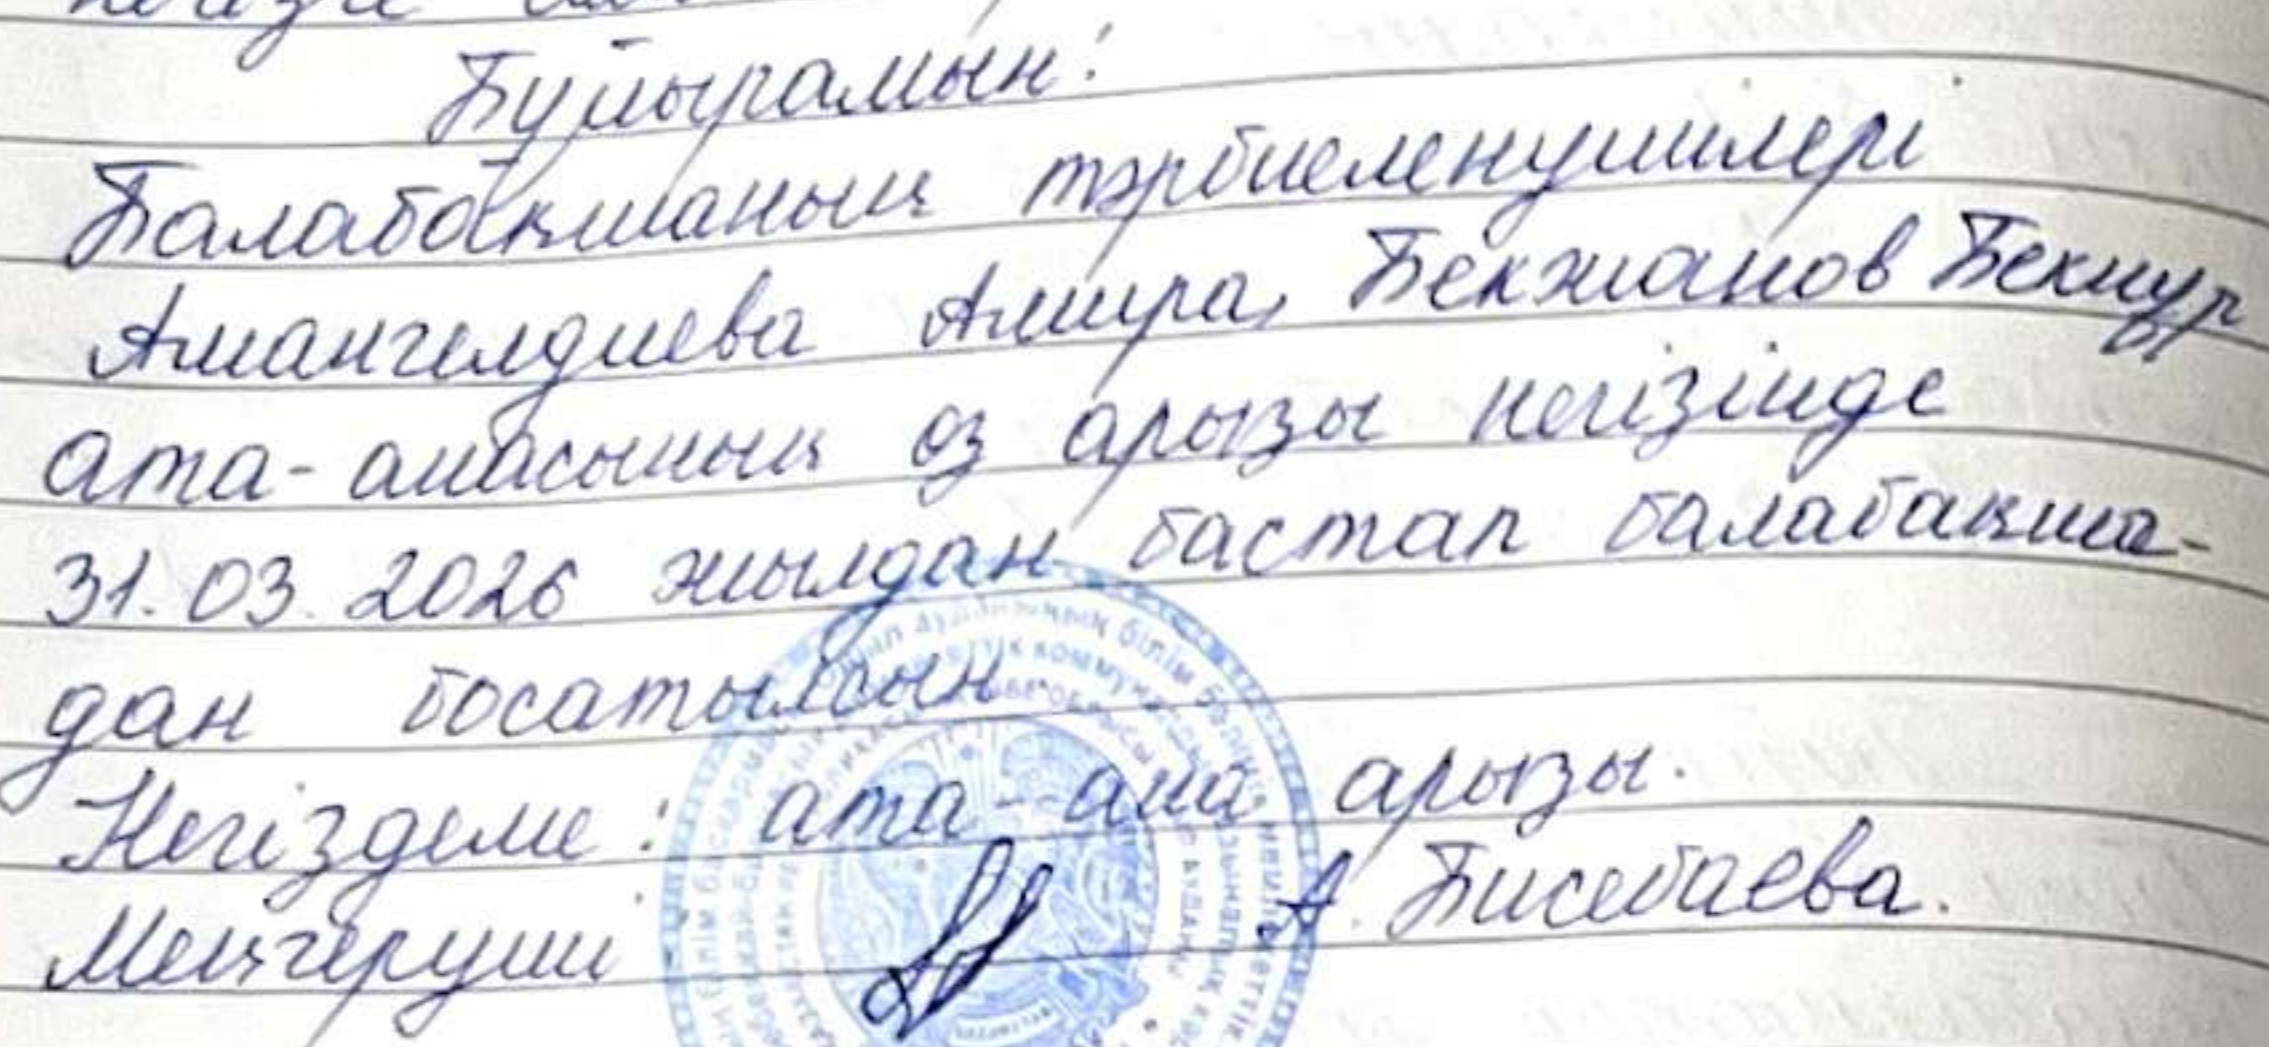 негізге
Бұйырамын!
Балабақшаның тәрбиеленушілері
Амангелдиева Амира, Бекжанов Бекнұр
ата-анасының өз арызы негізінде
31.03.2026 жылдан бастап балабақша-
дан босатылсын.
Негіздеме: ата-ана арызы.
Меңгеруші А. Бисебаева.
аудандық білім бөлімінің мемлекеттік